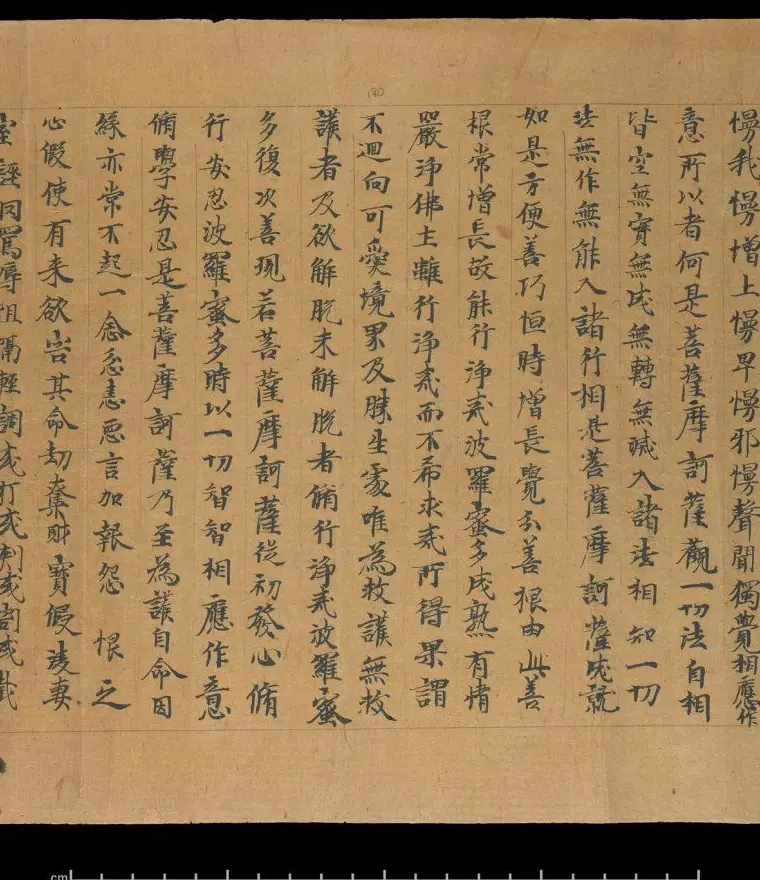 慢我慢增上慢卑慢邪慢聲聞獨覺相應作
意所以者何是菩薩摩訶薩觀一切法自相
皆空無實無成無轉無滅入諸法相知一切
法無作無能入諸行相是菩薩摩訶薩成就
如是方便善巧恒時增長覺分善根由此善
根常增長故能行淨戒波羅蜜多成熟有情
嚴淨佛土雖行淨戒而不希求戒所得果謂
不迴向可愛境界及勝生處唯為救護無救
護者及欲解脫未解脫者脩行淨戒波羅蜜
多復次善現若菩薩摩訶薩從初發心脩
行安忍波羅蜜多時以一切智智相應作意
脩學安忍是菩薩摩訶薩乃至為護自命因
緣亦常不起一念忿恚惡言加報怨恨之
心假使有來欲害其命劫奪財寶侵淩妻
室誣罔罵辱阻隔輕調或打或刺或割或截
180
cm